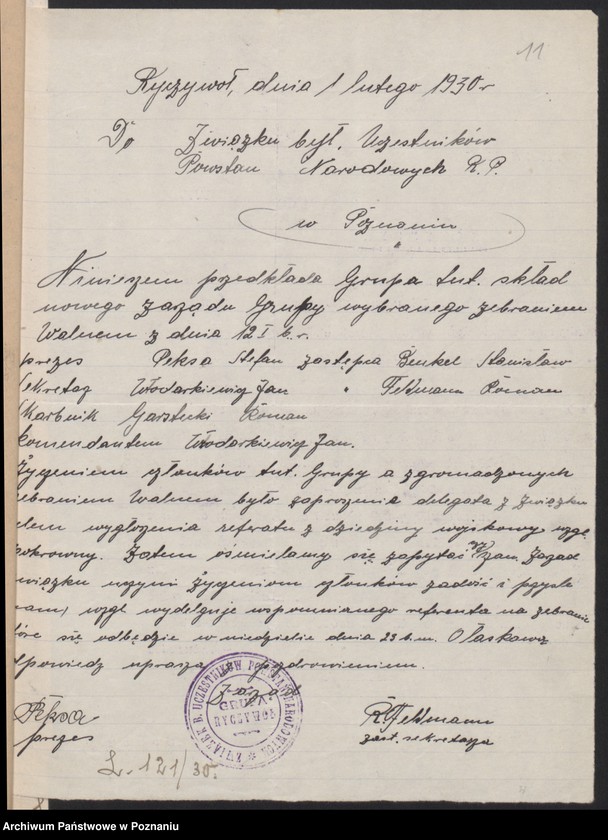 11
Ryczywoł, dnia 1 lutego 1930 r
Do Związku był. Uczestników
Powstań Narodowych R. P.
w Poznaniu
Niniejszem przedkłada Grupa tut. skład
nowego zarządu Grupy wybranego zebraniem
Walnem z dnia 12 I b.r.
prezes Peksa Stefan zastępca Benkel Stanisław
sekretaz Włodarkiewicz Jan " Tetzmann Roman
Skarbnik Garstecki Roman
komendantem Włodarkiewicz Jan.
Życzeniem członków tut. Grupy a zgromadzonych
zebraniem Walnem było zaproszenia delegata z Związku
celem wygłoszenia referatu z dziedziny wojskowy wzgl.
pokrewny. Zatem ośmielamy się zapytać czy zan. Zarząd
Związku uczyni życzeniom członków zadość i pszyśle
nam, wzgl wydelguje wspomnianego referenta na zebranie
które się odbędzie w niedzielie dnia 23 b.m. O łaskawą
odpowiedz uprasza z pozdrowieniem.
Zarząd
ZWIĄZEK B. UCZESTNIKÓW POWSTAŃ NARODOWYCH
GRUPA
RYCZYWÓŁ
Peksa
prezes
R. Tetzmann
zast. sekretaza
L. 121/30.
Archiwum Państwowe w Poznaniu